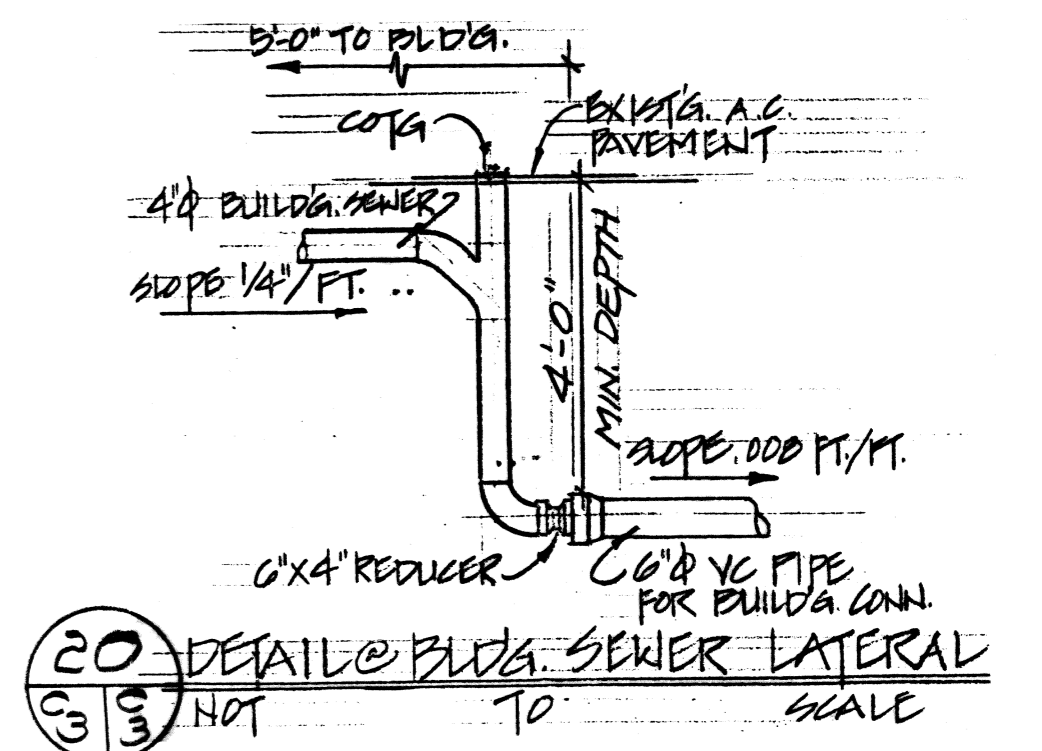 5'-0" TO BLD'G.
COTG
EXIST'G. A.C.
PAVEMENT
4"φ BUILD'G. SEWER
SLOPE 1/4"/FT.
4'-0"
MIN. DEPTH
SLOPE .008 FT./FT.
6"X4" REDUCER
6"φ VC PIPE
FOR BUILD'G. CONN.
20
C3 C3
DETAIL @ BLDG. SEWER LATERAL
NOT TO SCALE